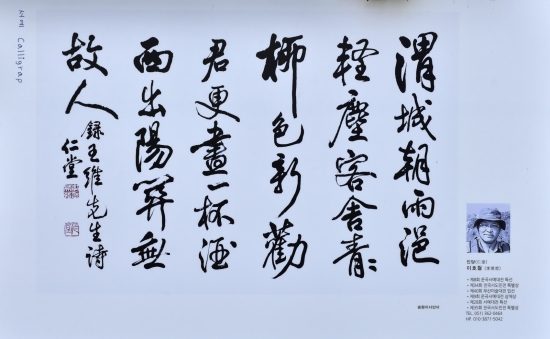 서예 Calligrap
渭城朝雨浥
輕塵客舍青々
柳色新勸
君更盡一杯酒
西出陽關無
故人
錄王維先生詩
仁堂
인당(仁堂)
TEL. 051) 362-0464
HP. 010-3871-5042